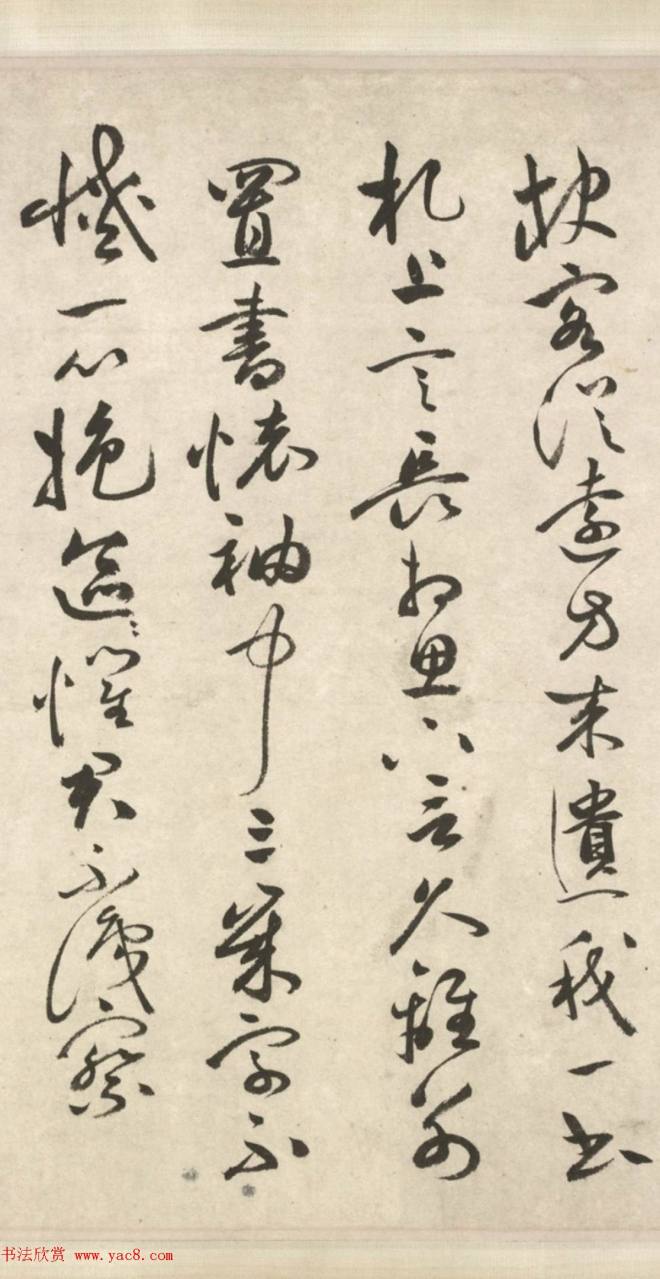 缺客從遠方来遺我一書
札上言長相思下言久離別
置書懷袖中三歲字不
滅一心抱區〻懼君不識察
书法欣赏 www.yac8.com